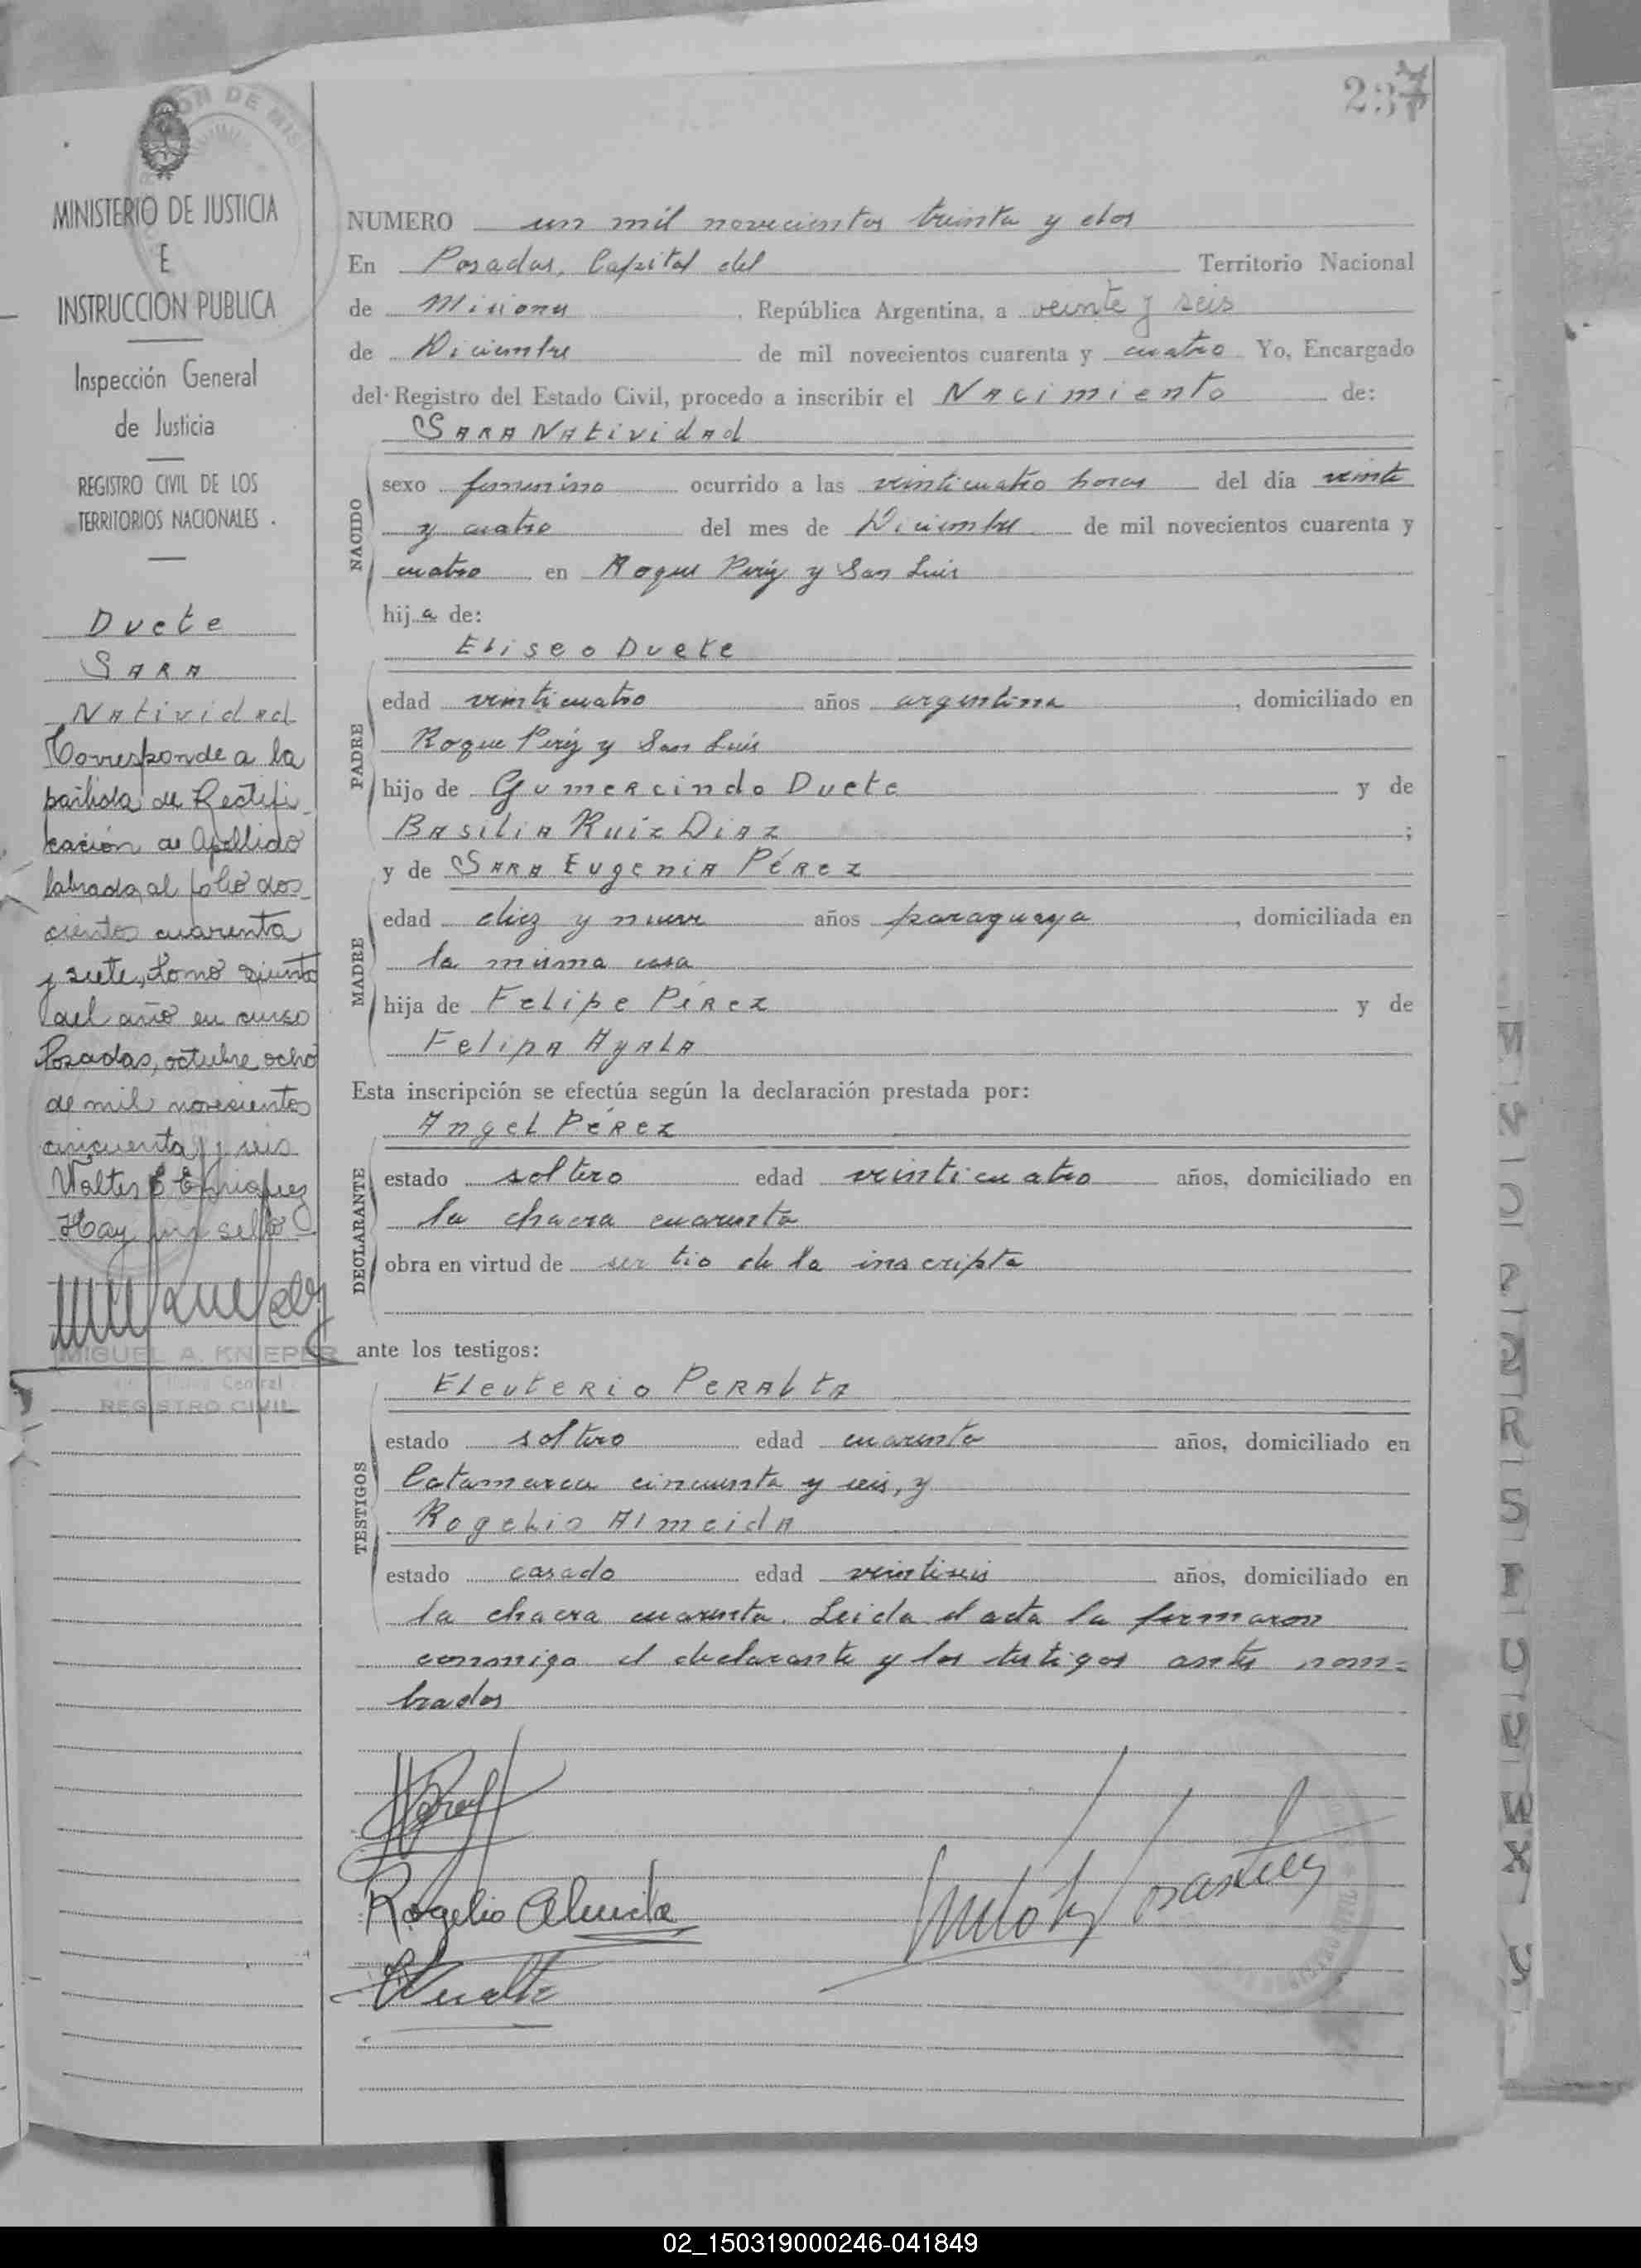 237
MINISTERIO DE JUSTICIA
E
INSTRUCCION PUBLICA
Inspección General
de Justicia
REGISTRO CIVIL DE LOS
TERRITORIOS NACIONALES
Duete
Sara
Natividad
Corresponde a la
partida de Rectifi
cación de Apellido
labrada, al folio dos_
cientos cuarenta
y siete, tomo quinto
del año en curso
Posadas, octubre ocho
de mil novecientos
cincuenta y seis
Walter E
Hay un sello
MIGUEL A. KNIEPER
Central
REGISTRO CIVIL
NUMERO un mil novecientos treinta y dos
En Posadas, Capital del Territorio Nacional
de Misiones, República Argentina, a veinte y seis
de Diciembre de mil novecientos cuarenta y cuatro Yo, Encargado
del Registro del Estado Civil, procedo a inscribir el Nacimiento de:
Sara Natividad
NACIDO
sexo femenino ocurrido a las veinticuatro horas del día veinte
y cuatro del mes de Diciembre de mil novecientos cuarenta y
cuatro en Roque Peréz y San Luis
hija de:
Eliseo Duete
PADRE
edad veinticuatro años argentina, domiciliado en
Roque Peréz y San Luis
hijo de Gumercindo Duete y de
Basilia Ruiz Diaz ;
y de Sara Eugenia Pérez
MADRE
edad diez y nueve años paraguaya, domiciliada en
la misma casa
hija de Felipe Pérez y de
Felipa Ayala
Esta inscripción se efectúa según la declaración prestada por:
Angel Pérez
DECLARANTE
estado soltero edad veinticuatro años, domiciliado en
la chacra cuarenta
obra en virtud de ser tio de la inscripta
ante los testigos:
Eleuterio Peralta
TESTIGOS
estado soltero edad cuarenta años, domiciliado en
Catamarca cincuenta y seis, y
Rogelio Almeida
estado casado edad veintiseis años, domiciliado en
la chacra cuarenta. Leida el acta la firmaron
conmigo el declarante y los testigos antes nom=
brados
Rogelio Almeida
02_150319000246-041849